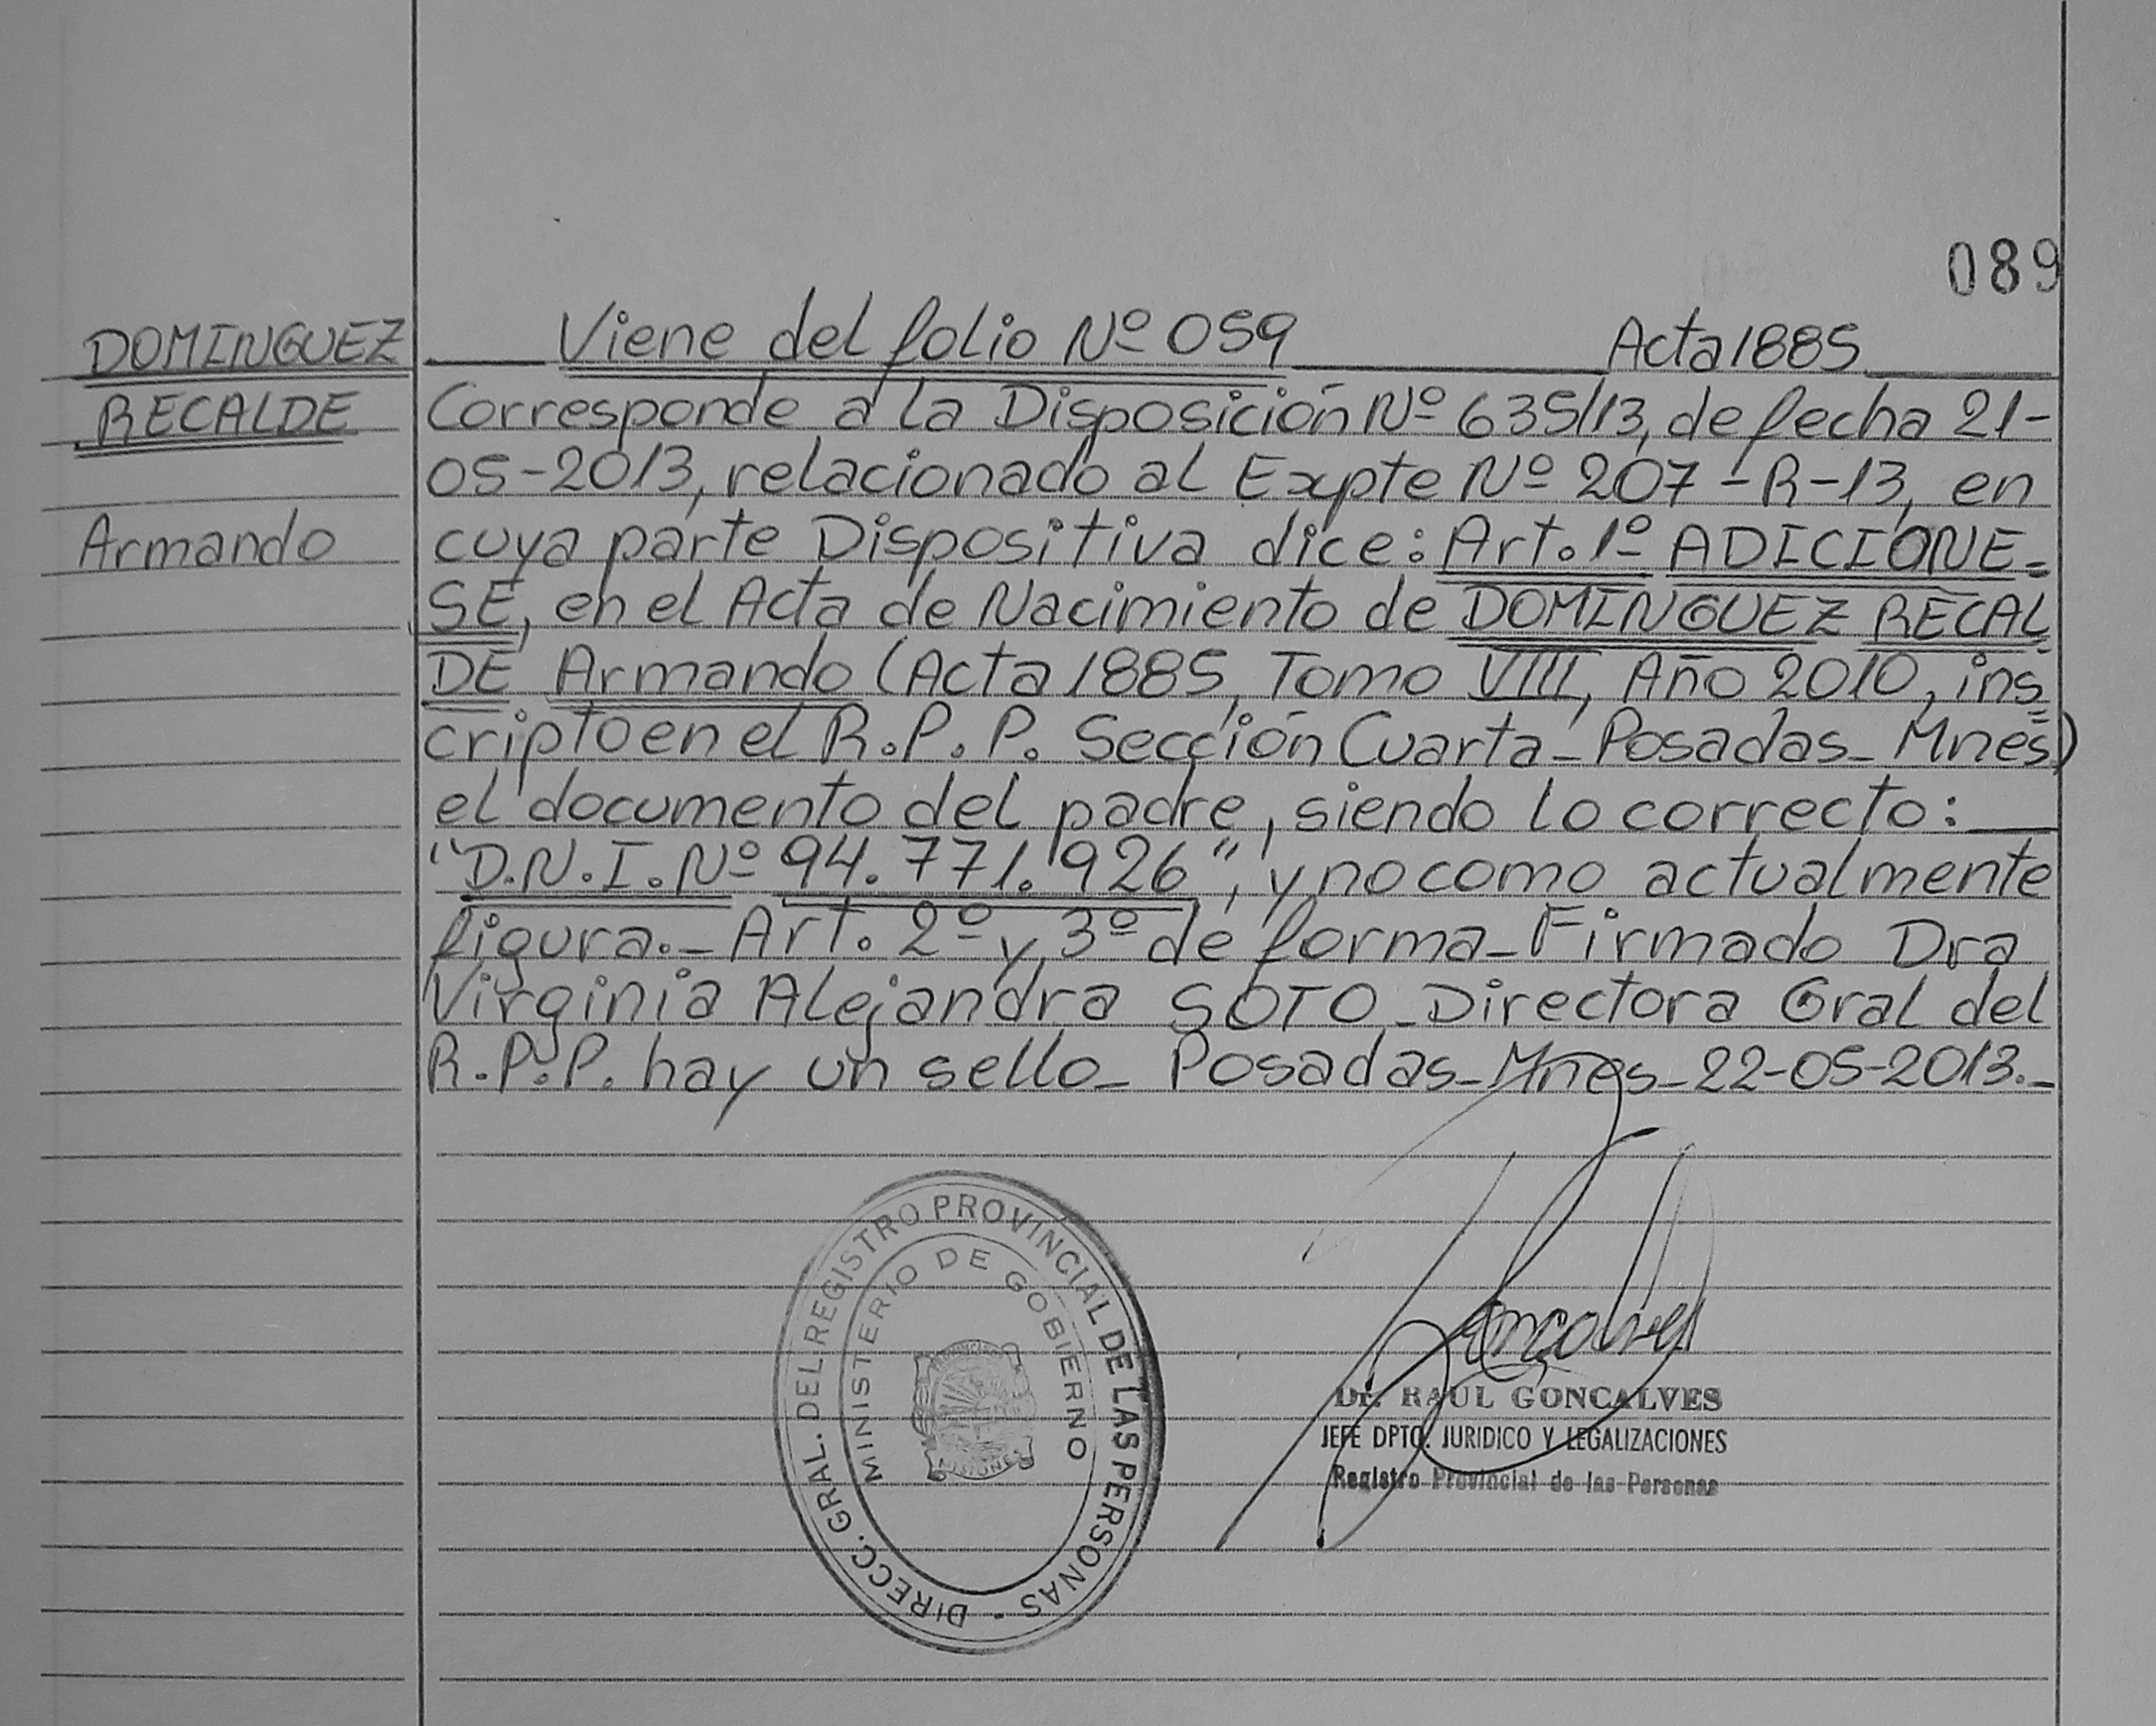 089
DOMINGUEZ
RECALDE
Armando
Viene del folio Nº 059 Acta 1885
Corresponde a la Disposición Nº 635/13, de fecha 21-
05-2013, relacionado al Expte Nº 207-R-13, en
cuya parte Dispositiva dice: Art. 1º ADICIONE-
SE, en el Acta de Nacimiento de DOMINGUEZ RECAL
DE Armando (Acta 1885, Tomo VIII, Año 2010, ins
cripto en el R.P.P. Sección Cuarta_Posadas_Mnes)
el documento del padre, siendo lo correcto:
"D.N.I. Nº 94.771.926", y no como actualmente
figura._Art. 2º y 3º de forma_Firmado Dra
Virginia Alejandra SOTO_Directora Gral del
R.P.P. hay un sello_ Posadas_Mnes_22-05-2013._
DIRECC. GRAL. DEL REGISTRO PROVINCIAL DE LAS PERSONAS -
MINISTERIO DE GOBIERNO
PROVINCIA
MISIONES
Goncalves
Dr. RAUL GONCALVES
JEFE DPTO. JURIDICO Y LEGALIZACIONES
Registro Provincial de las Personas